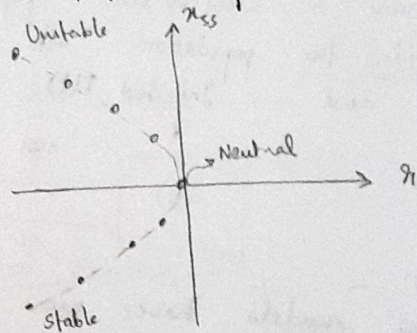 Unstable
x_ss
Neutral
r
Stable